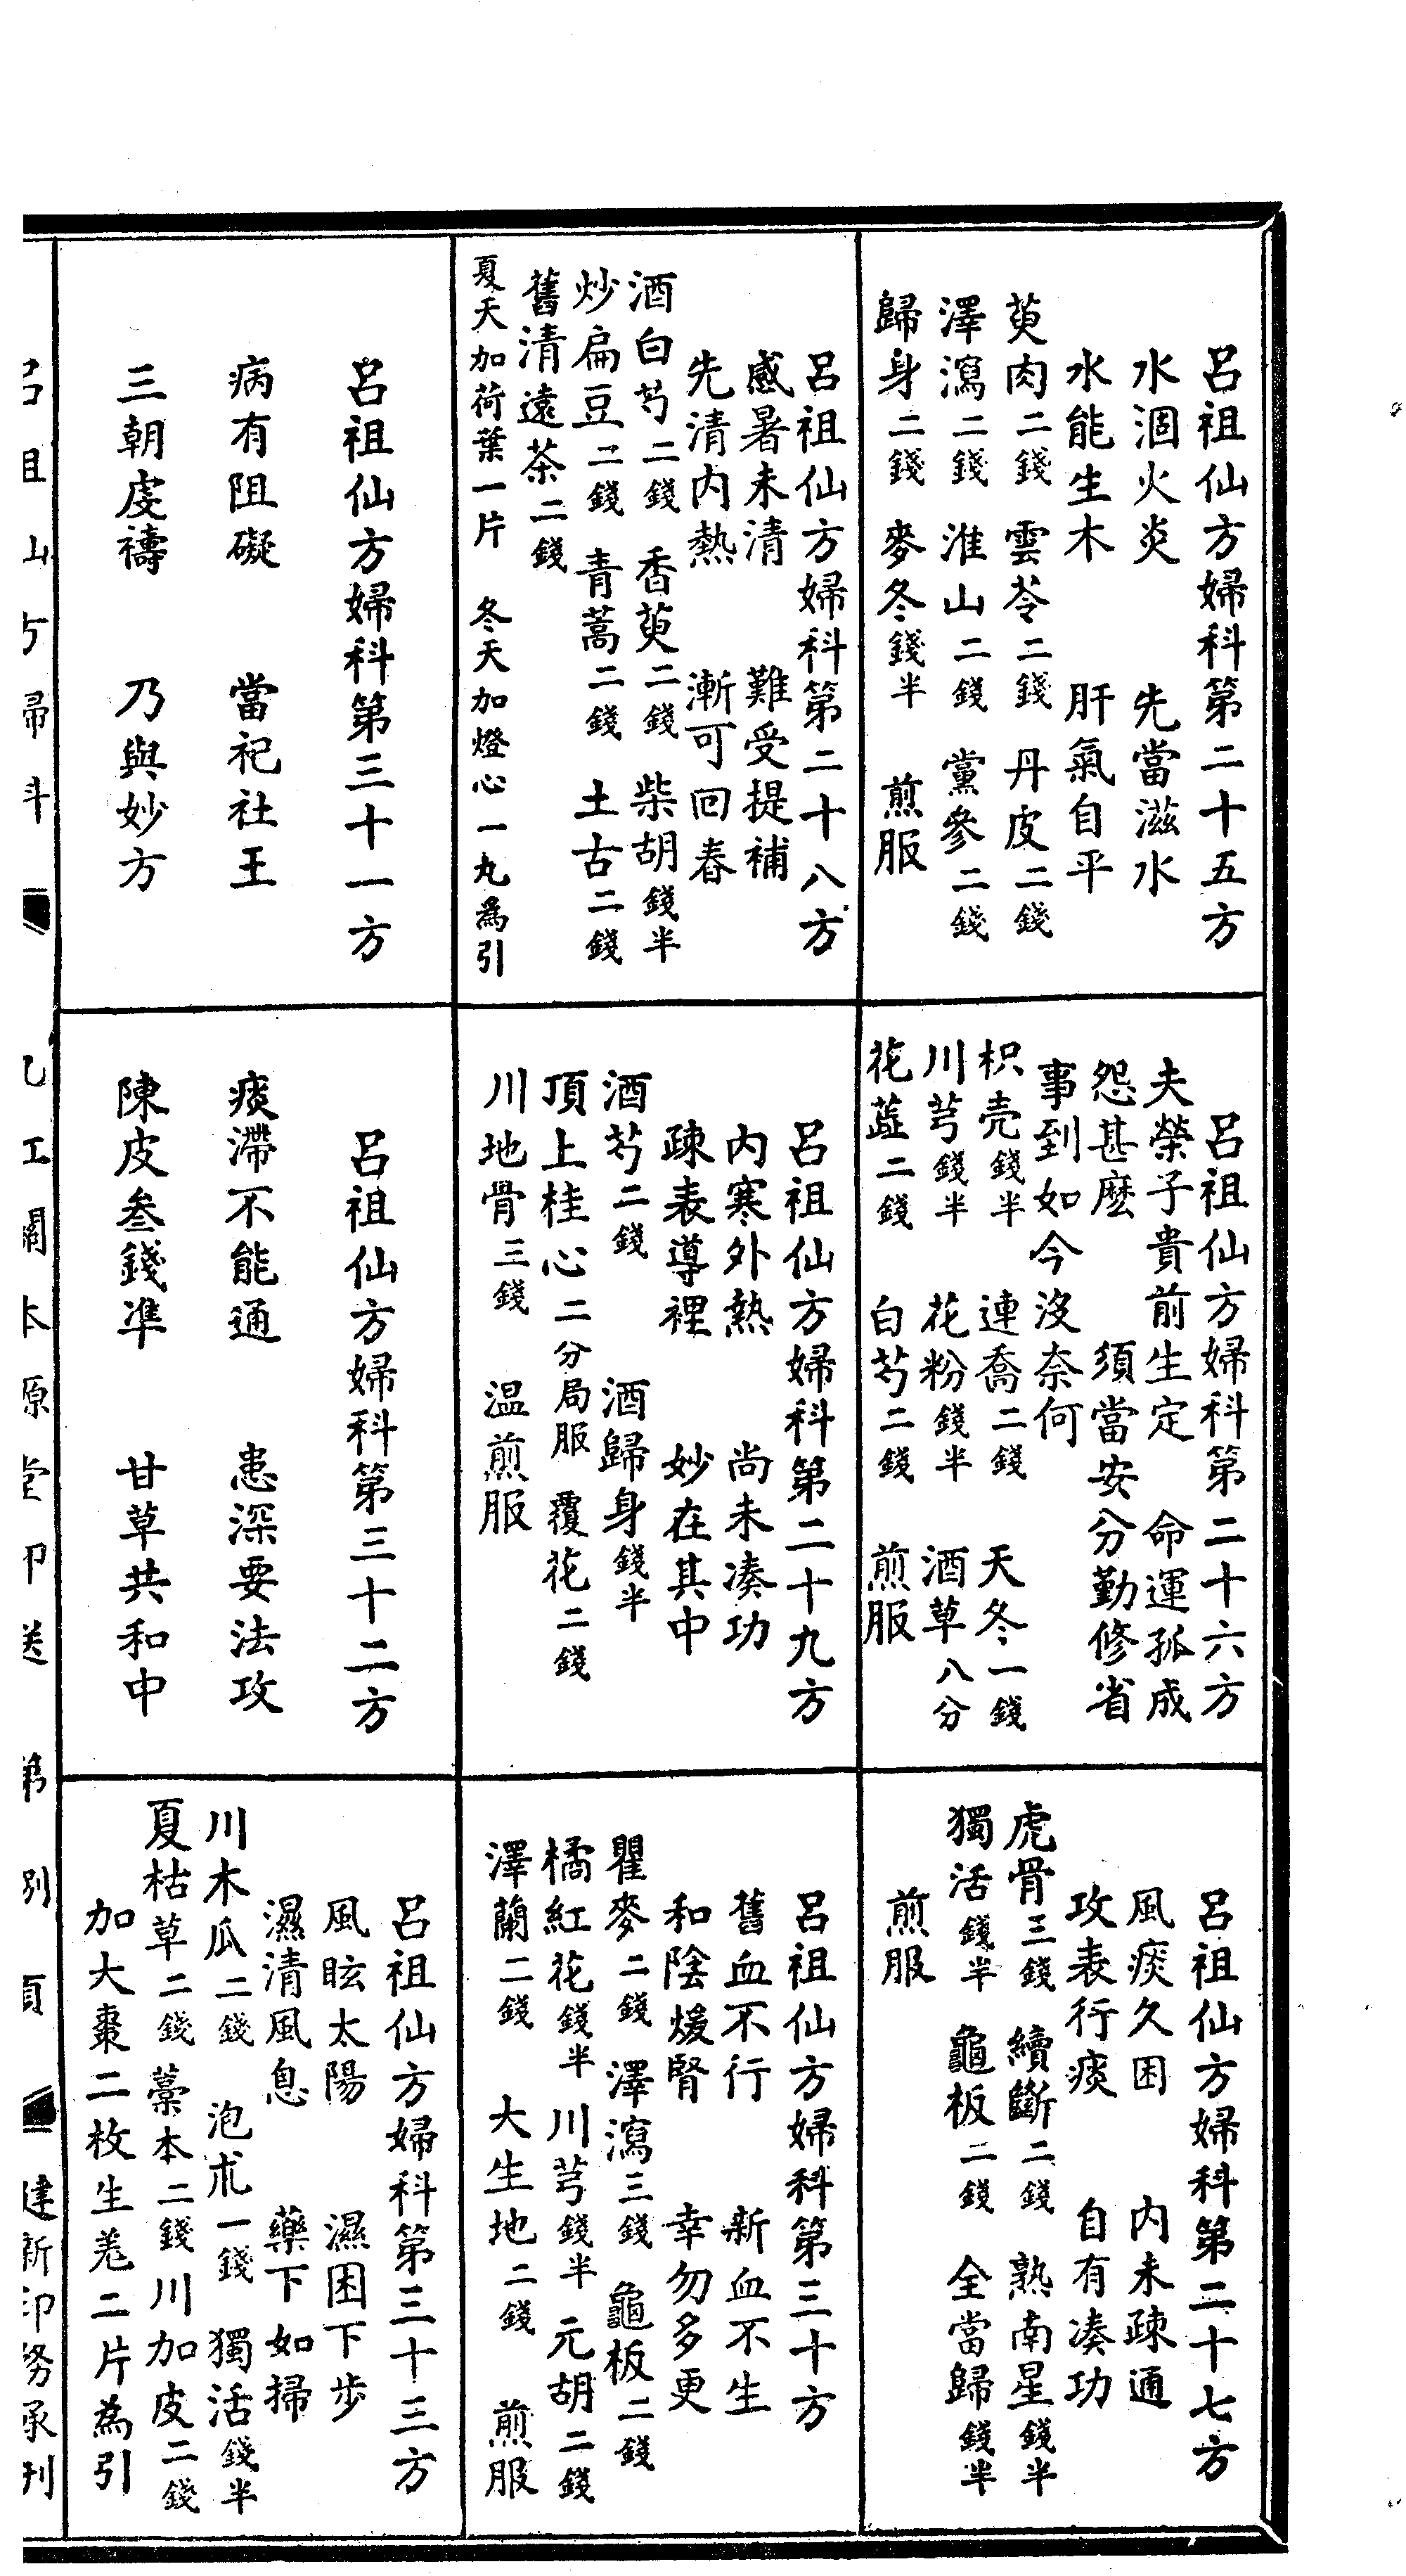 呂祖仙方婦科第二十五方
水涸火炎　先當滋水
水能生木　肝氣自平
萸肉二錢　雲苓二錢　丹皮二錢
澤瀉二錢　淮山二錢　黨參二錢
歸身二錢　麥冬錢半　煎服
呂祖仙方婦科第二十六方
夫榮子貴前生定　命運孤成
怨甚麼　須當安分勤修省
事到如今沒奈何
枳壳錢半　連喬二錢　天冬一錢
川芎錢半　花粉錢半　酒草八分
花藍二錢　白芍二錢　煎服
呂祖仙方婦科第二十七方
風痰久困　內未疎通
攻表行痰　自有凑功
虎骨三錢　續斷二錢　熟南星錢半
獨活錢半　龜板二錢　全當歸錢半
煎服
呂祖仙方婦科第二十八方
感暑未清　難受提補
先清內熱　漸可回春
酒白芍二錢　香萸二錢　柴胡錢半
炒扁豆二錢　青蒿二錢　土古二錢
舊清遠茶二錢
夏天加荷葉一片　冬天加燈心一丸為引
呂祖仙方婦科第二十九方
內寒外熱　尚未凑功
疎表導裡　妙在其中
酒芍二錢　酒歸身錢半
頂上桂心二分局服　覆花二錢
川地骨三錢　温煎服
呂祖仙方婦科第三十方
舊血不行　新血不生
和陰煖腎　幸勿多更
瞿麥二錢　澤瀉三錢　龜板二錢
橘紅花錢半　川芎錢半　元胡二錢
澤蘭二錢　大生地二錢　煎服
呂祖仙方婦科第三十一方
病有阻礙　當祀社王
三朝虔禱　乃與妙方
呂祖仙方婦科第三十二方
痰滯不能通　患深要法攻
陳皮叁錢凖　甘草共和中
呂祖仙方婦科第三十三方
風眩太陽　濕困下步
濕清風息　藥下如掃
川木瓜二錢　泡朮一錢　獨活錢半
夏枯草二錢　藁本二錢　川加皮二錢
加大棗二枚生羗二片為引
呂祖仙方婦科　九江關本源堂印送　第　頁　建新印務承刊